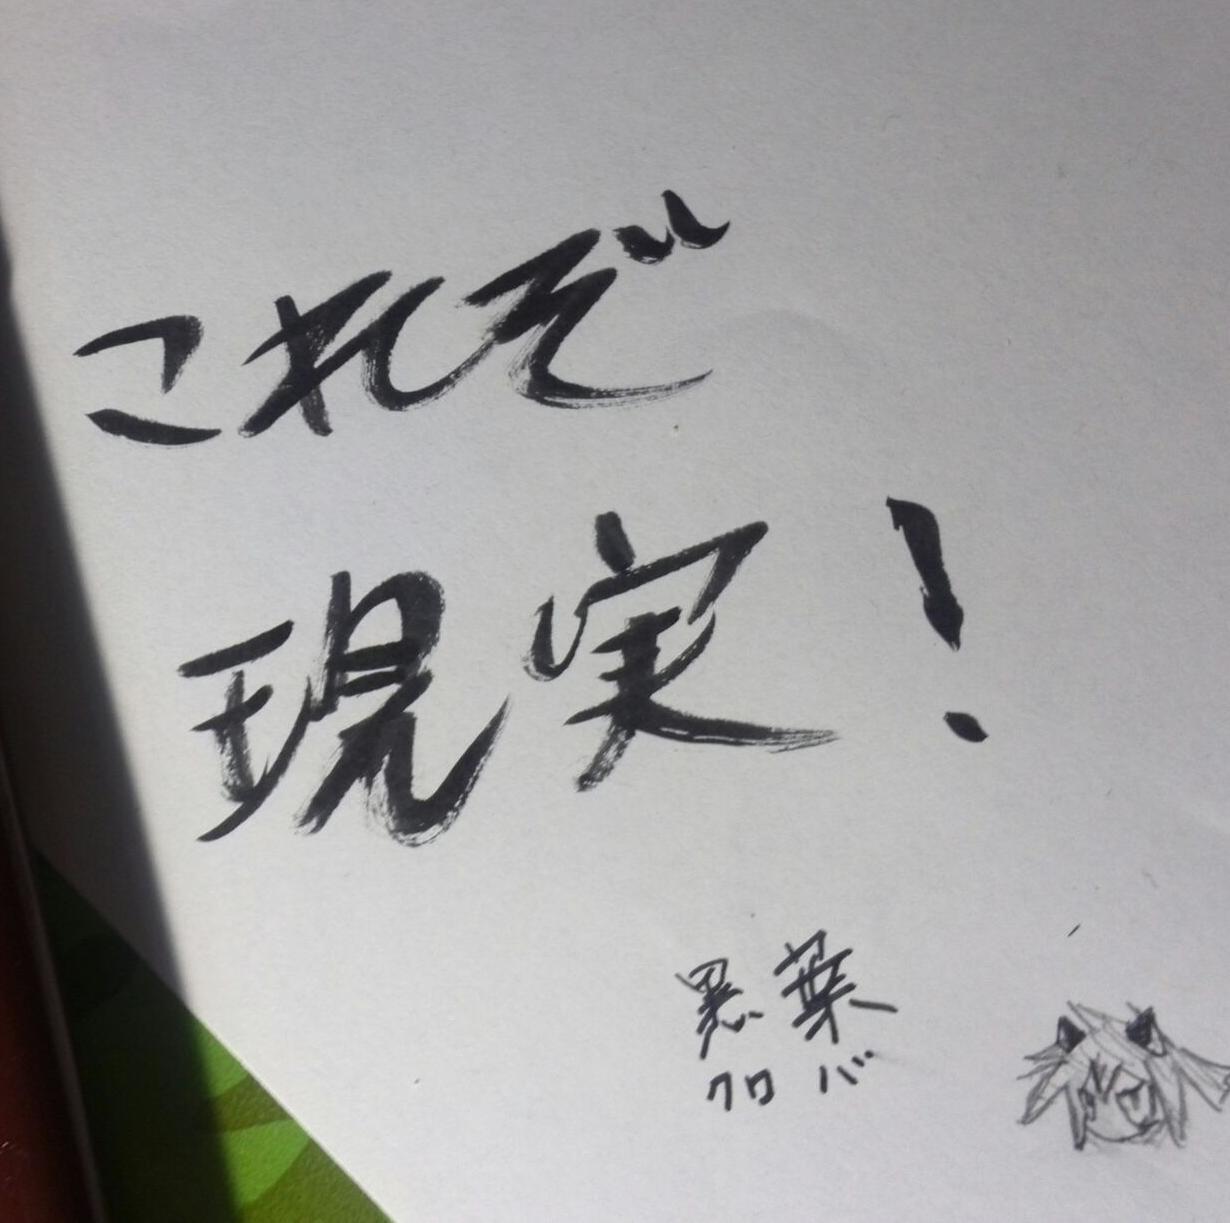 これぞ
現実!
黒葉
クロバ